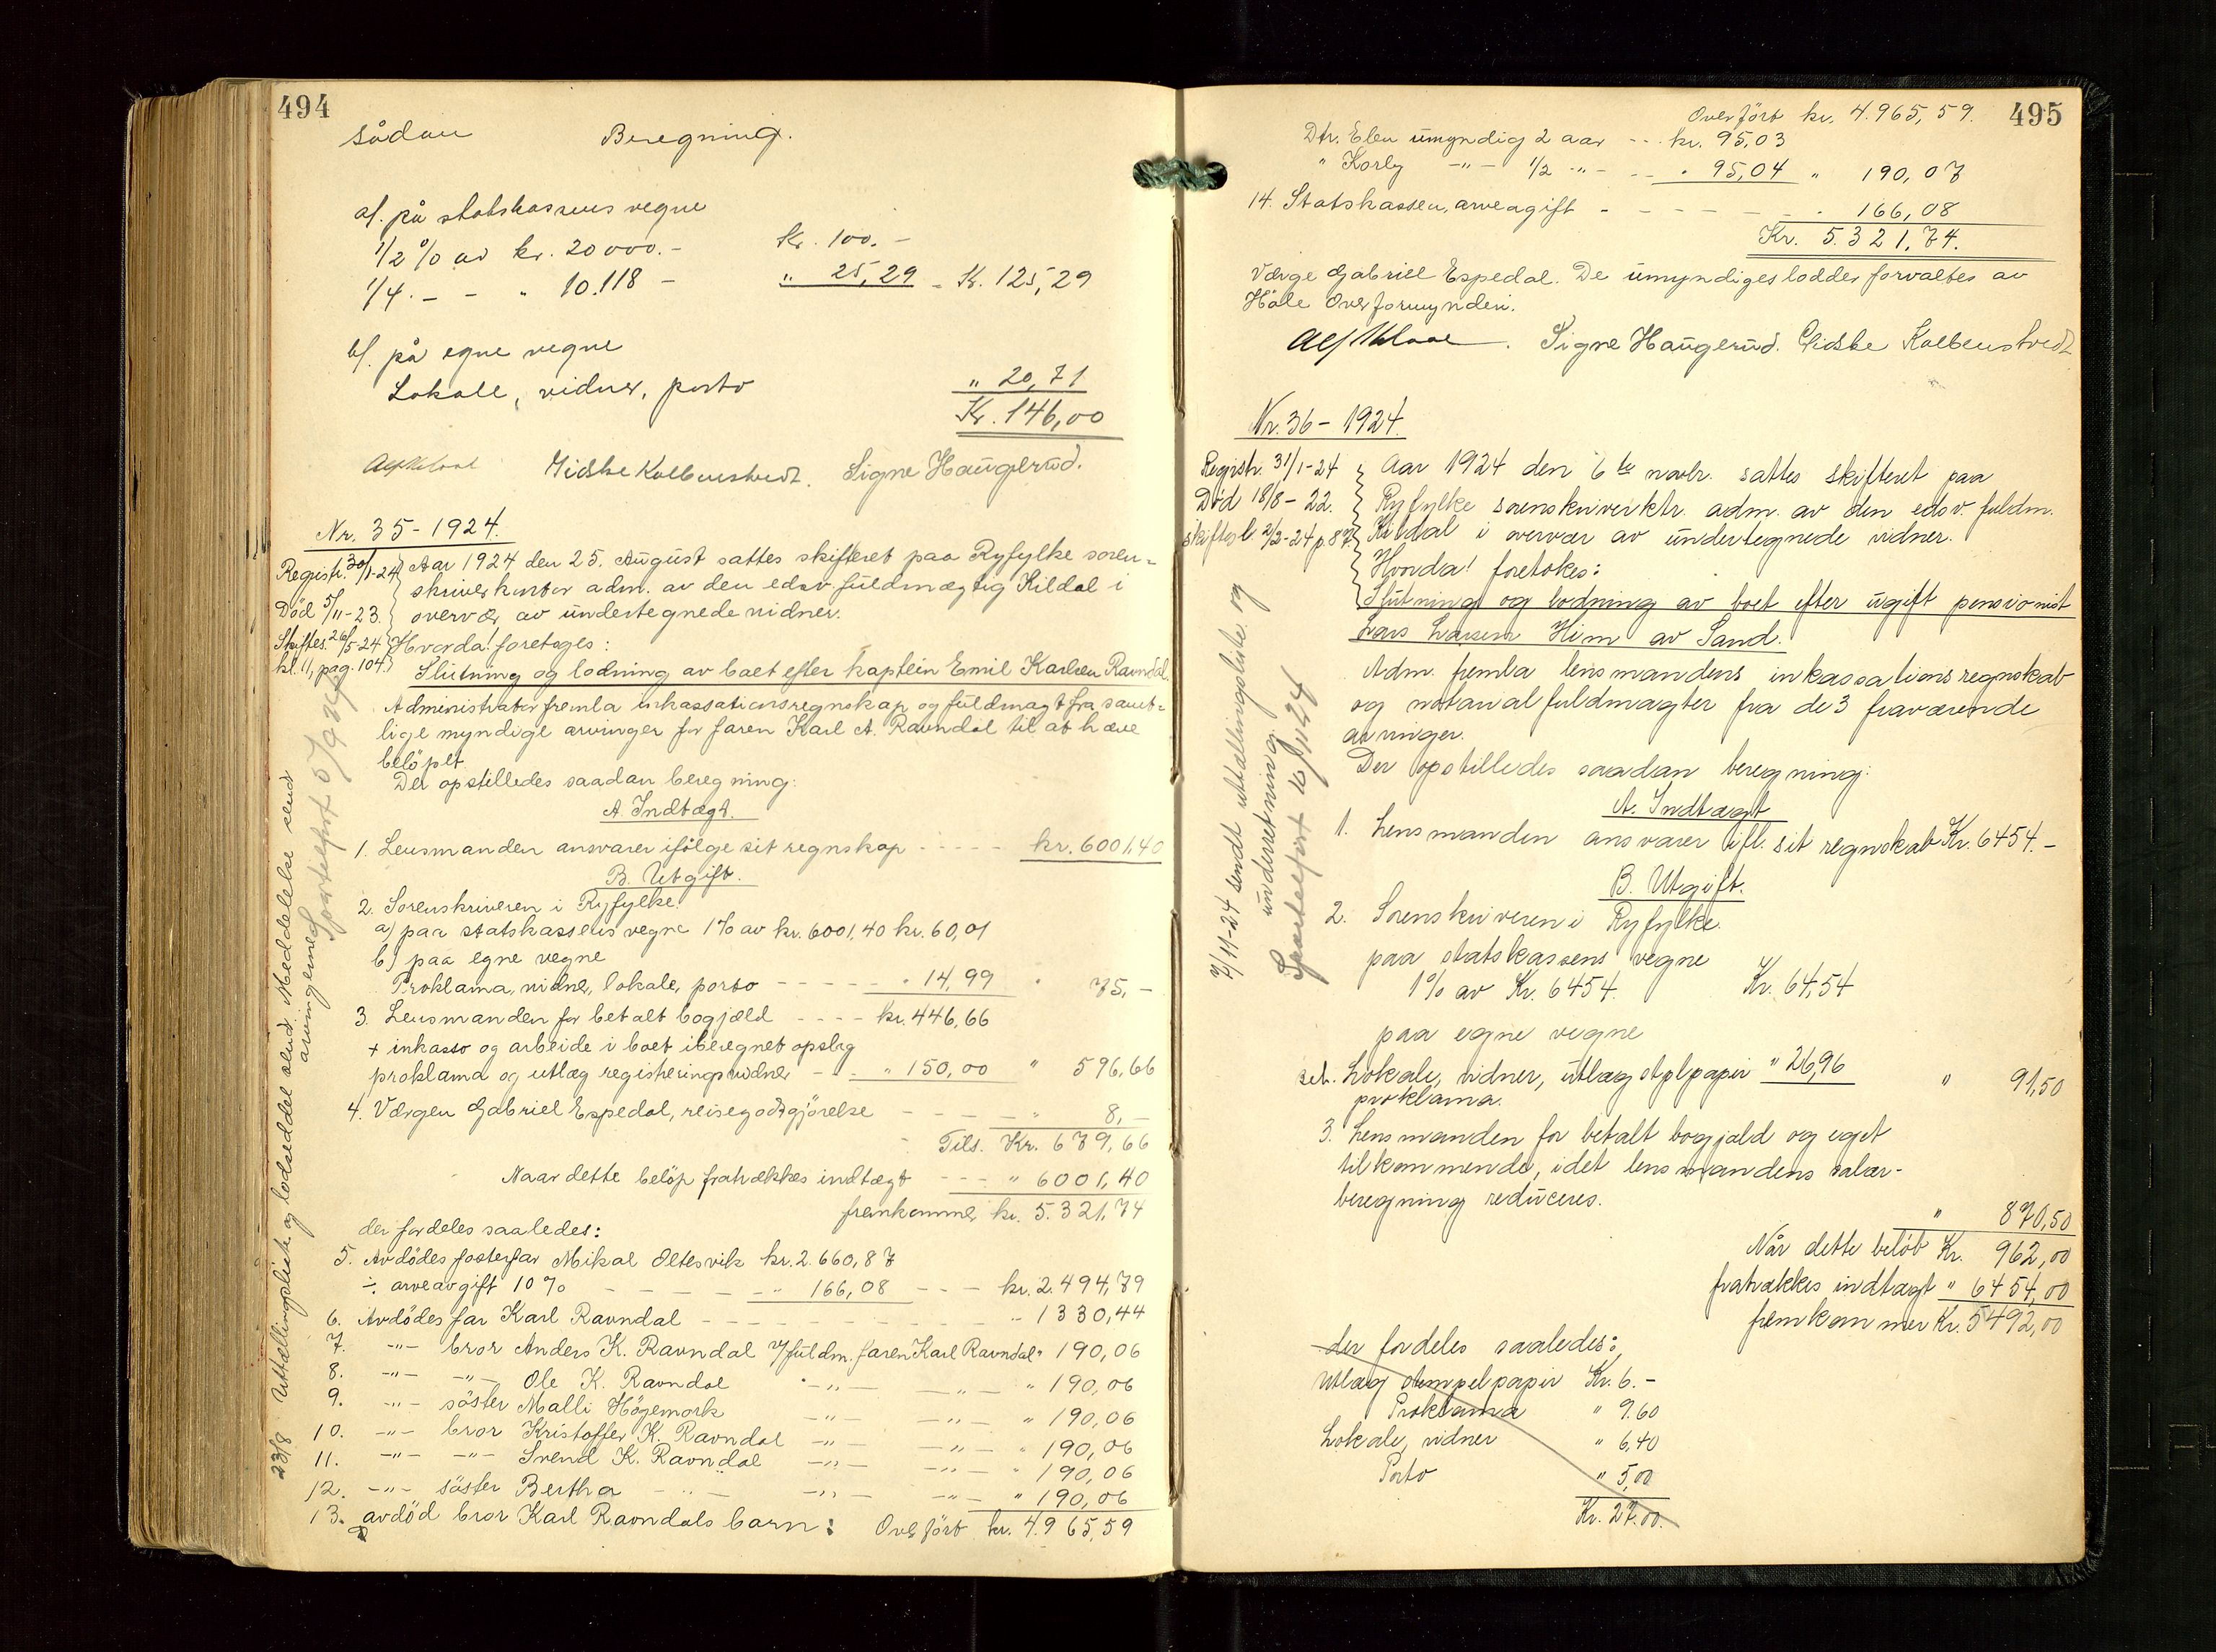 494
sådan Beregning.
a). på statskassens vegne
1/2 % av kr. 20000.- Kr. 100.-
1/4 . - - " 10.118 - " 25,29 - Kr. 125,29
b). på egne vegne
Lokale, vidner, porto " 20,71
Kr. 146,00
Kolbenstvedt. Signe Haugerud.
Nr. 35 - 1924.
Registr. 30/1-24
Død 5/11-23.
Skiftes. 26/5-24
bl. 11, pag. 104
Aar 1924 den 25. August sattes skifteret paa Ryfylke soren-
skriverkontor adm. av den edsv. fuldmægtig Kildal i
overvær av undertegnede vidner.
Hvorda! foretoges:
Slutning og lodning av boet efter kaptein Emil Karlsen Ravndal.
Administrator fremla inkassationsregnskap og fuldmagt fra samt-
lige myndige arvinger for faren Karl A. Ravndal til at hæve
beløpet.
Der opstilledes saadan beregning:
A. Indtægt.
1. Lensmanden ansvarer ifølge sit regnskap - - - - - kr. 6001,40
B. Utgift.
2. Sorenskriveren i Ryfylke:
a) paa statskassens vegne 1% av kr. 6001,40 kr. 60,01
b) paa egne vegne
Proklama, vidner, lokale, porto - - - - - " 14,99 " 75,-
3. Lensmanden for betalt bogjæld - - - - kr. 446,66
+ inkasso og arbeide i boet iberegnet opslag
proklama og utlæg registreringsvidner - - - " 150,00 " 596,66
4. Værgen Gabriel Espedal, reisegodtgjørelse - - - - " 8,-
Tils. Kr. 679,66
Naar dette beløp fratrækkes indtægt - - - " 6001,40
fremkommer kr. 5.321,74
der fordeles saaledes:
5. Avdødes fosterfar Mikal Oltesvik kr. 2.660,87
÷ arveavgift 10% - - - - - " 166,08 - - - kr. 2.494,79
6. Avdødes far Karl Ravndal - - - - - - - - " 1330,44
7. -"- bror Anders K. Ravndal v/fuldm. faren Karl Ravndal " 190,06
8. -"- -"- Ole K. Ravndal -"- -"- " 190,06
9. -"- søster Malli Høgemork -"- -"- " 190,06
10. -"- bror Kristoffer K. Ravndal -"- -"- " 190,06
11. -"- -"- Svend K. Ravndal -"- -"- " 190,06
12. -"- søster Bertha -"- -"- -"- " 190,06
13. avdød bror Karl Ravndals barn: Overført kr. 4.965,59
23/8 Uttællingsliste og lodseddel send. Meddelelse send
arvingerne
Sportelført 5/9 24
495
Overført kr. 4.965,59.
Dtr. Elen umyndig 2 aar - - . kr. 95,03
" Korly -"- 1/2 -"- - - " 95,04 " 190,07
14. Statskassen, arveagift - - - - - - - . 166,08
Kr. 5.321,74.
Værge Gabriel Espedal. De umyndiges lodder forvaltes av
Høle Overformynderi.
Signe Haugerud. Kolbenstvedt
Nr. 36 - 1924.
Registr. 31/1-24
Død 18/8-22.
Skiftesl. 2/2-24 p. 87
Aar 1924 den 6te novbr. sattes skifteret paa
Ryfylke sorenskriverktr. adm. av den edsv. fuldm.
Kildal i overvær av undertegnede vidner.
Hvorda! foretokes:
Slutning og lodning av boet efter ugift pensionist
Lars Larsen Him av Sand.
Adm. fremla lensmandens inkassationsregnskab
og notarialfuldmagter fra de 3 fraværende
arvinger.
Der opstilledes saadan beregning:
A. Indtægt
1. Lensmanden ansvarer ifl. sit regnskab Kr. 6454.-
B. Utgift.
2. Sorenskriveren i Ryfylke.
paa statskassens vegne
1% av Kr. 6454. Kr. 64,54
paa egne vegne
Lokale, vidner, utlæg stplpapir " 26,96 " 91,50
proklama.
3. Lensmanden for betalt bogjæld og eget
tilkommende, idet lensmandens salær-
beregning reduceres. " 870,50
Når dette beløb Kr. 962,00
fratrækkes indtægt " 6454,00
fremkommer Kr. 5492,00
der fordeles saaledes:
Utlæg stempelpapir Kr. 6.-
Proklama " 9.60
Lokale, vidner " 6,40
Porto " 5,00
Kr. 27.00.
7/11-24 sendt uttællingsliste og
underretning.
Sportelført 10/11 24